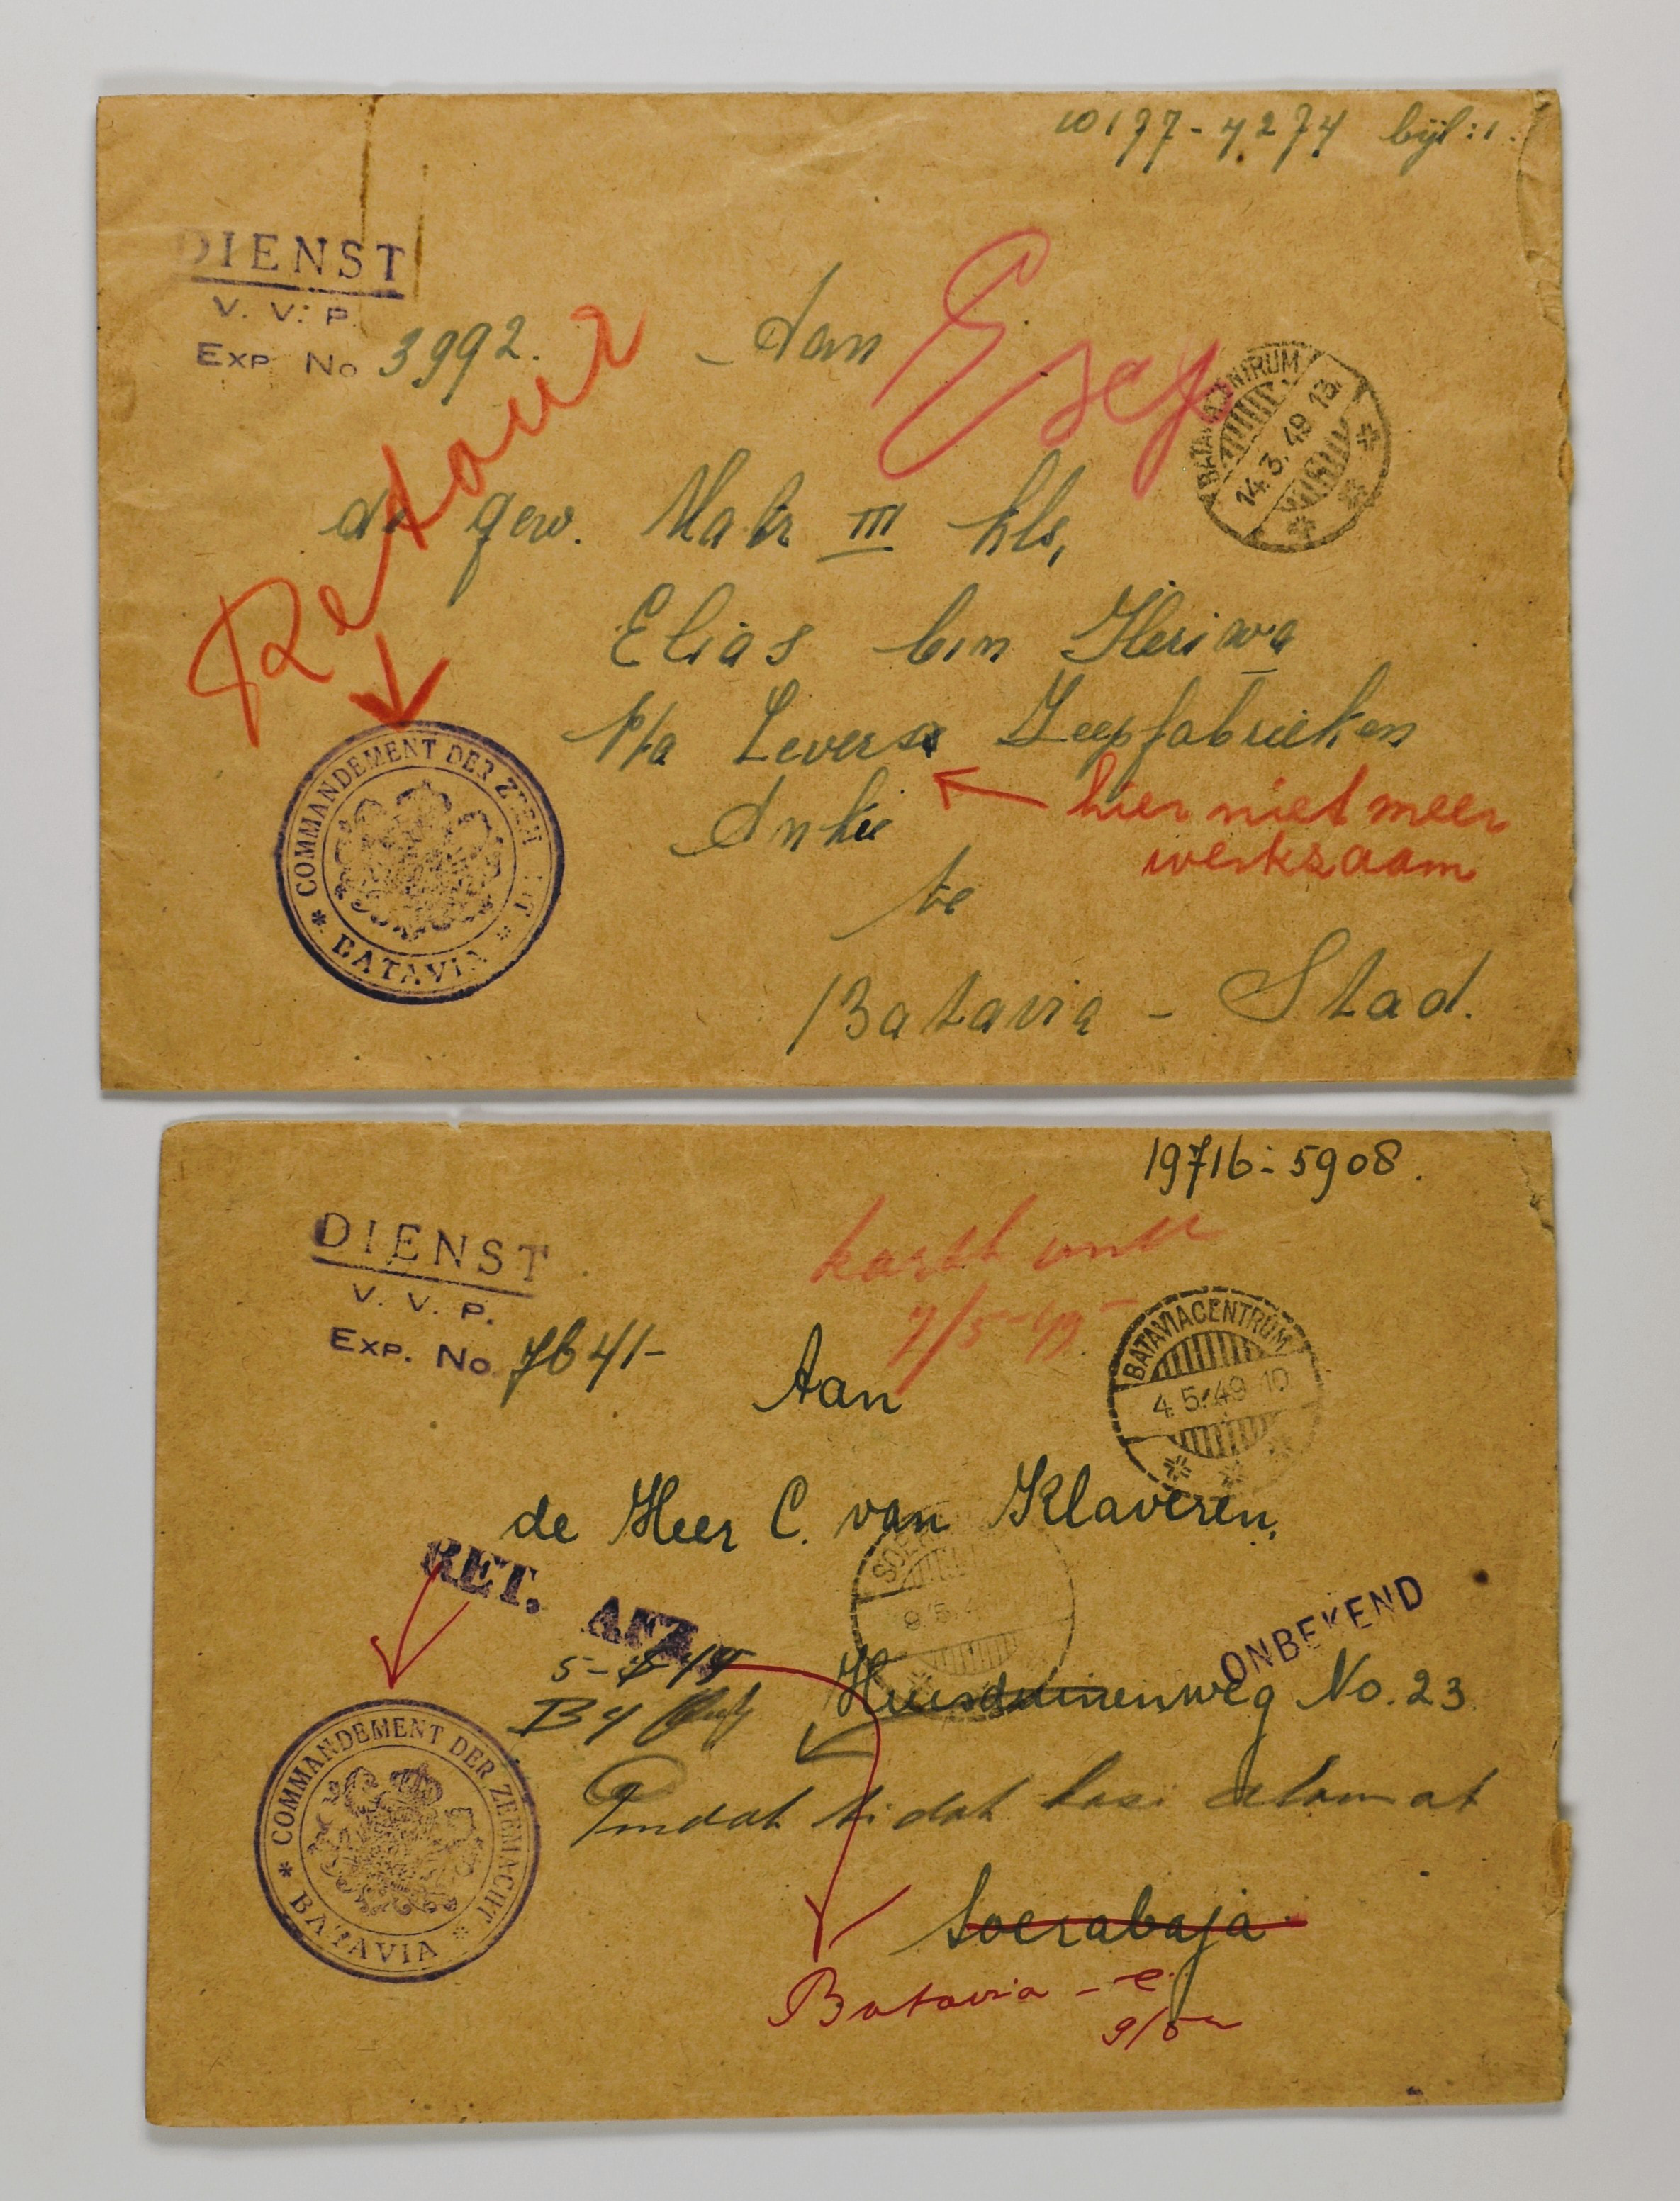 10177-4274 bijl: 1.
DIENST
V. V. P.
Exp No 3992.
Retour
Aan
BATAVIACENTRUM
14.3.49 13
de gew. Matr III kls,
Elias bin Heriwa
p/a Levers Zeepfabrieken
hier niet meer
werkzaam
Antié
te
Batavia - Stad.
COMMANDEMENT DER ZEEMACHT
* BATAVIA *
19716-5908.
DIENST
V. V. P.
Exp. No 7641-
7/5-49
Aan
BATAVIACENTRUM
4.5.49 10
de Heer C. van Klaveren,
RET. AFZ.
SOE
9.5.4
ONBEKEND
5-5-49
Huisduinenweg No. 23
Pindah tidak kasi alamat
Soerabaja
Batavia - C.
9/5
COMMANDEMENT DER ZEEMACHT
* BATAVIA *